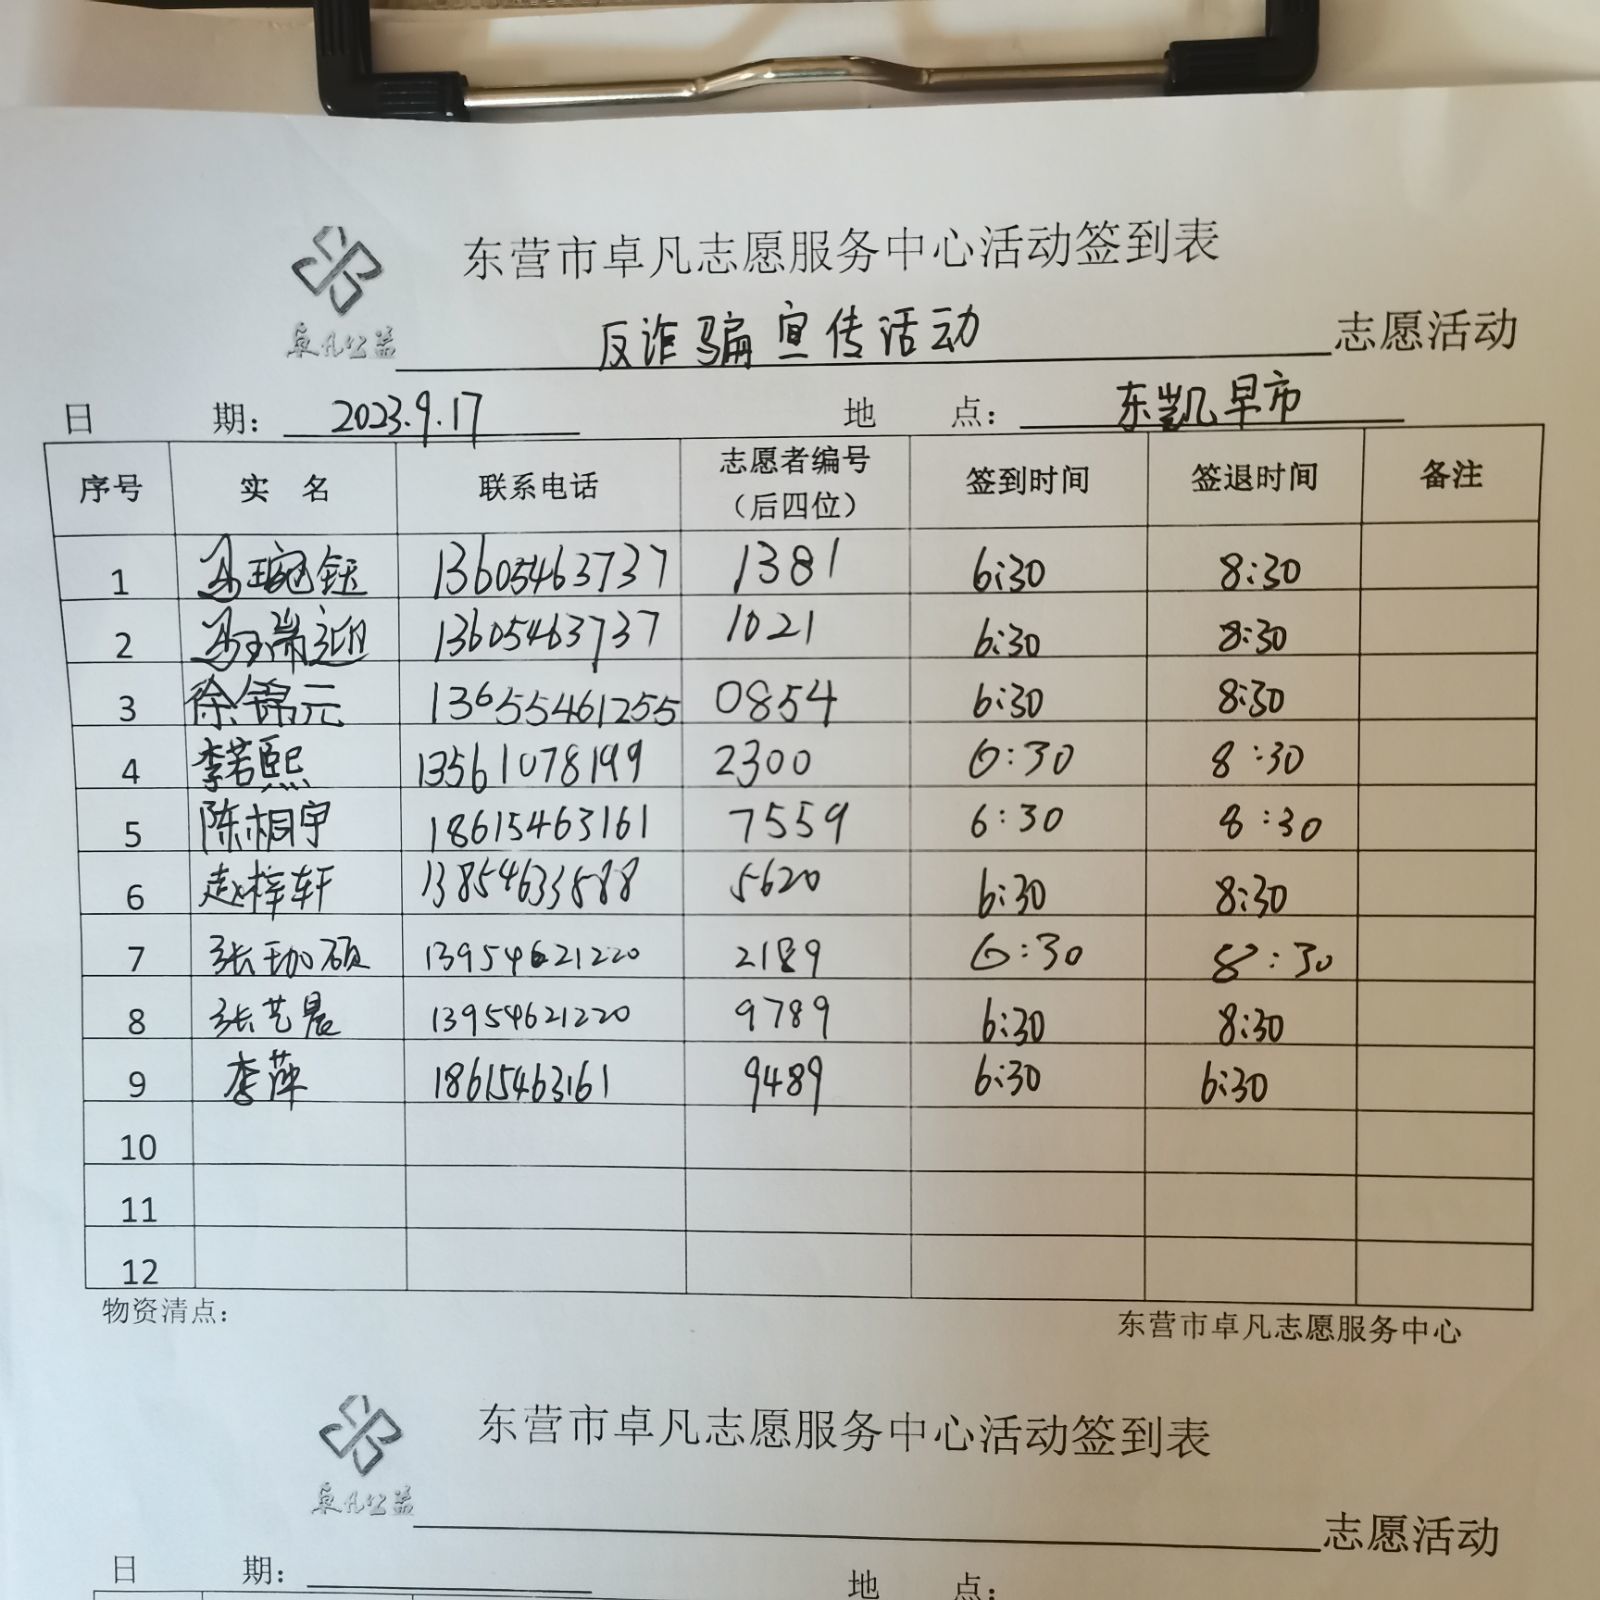 东营市卓凡志愿服务中心活动签到表
卓凡公益 反诈骗宣传活动 志愿活动
日 期： 2023.9.17 地 点： 东凯早市
序号 实 名 联系电话 志愿者编号（后四位） 签到时间 签退时间 备注
1 冯琬钰 13605463737 1381 6:30 8:30
2 冯瑞迎 13605463737 1021 6:30 8:30
3 徐锦元 13655461255 0854 6:30 8:30
4 李若熙 13561078199 2300 6:30 8:30
5 陈桐宇 18615463161 7559 6:30 8:30
6 赵梓轩 13854633588 5620 6:30 8:30
7 张珈硕 13954621220 2189 6:30 8:30
8 张艺晨 13954621220 9789 6:30 8:30
9 李萍 18615463161 9489 6:30 6:30
10
11
12
物资清点： 东营市卓凡志愿服务中心
东营市卓凡志愿服务中心活动签到表
卓凡公益 志愿活动
日 期： 地 点：